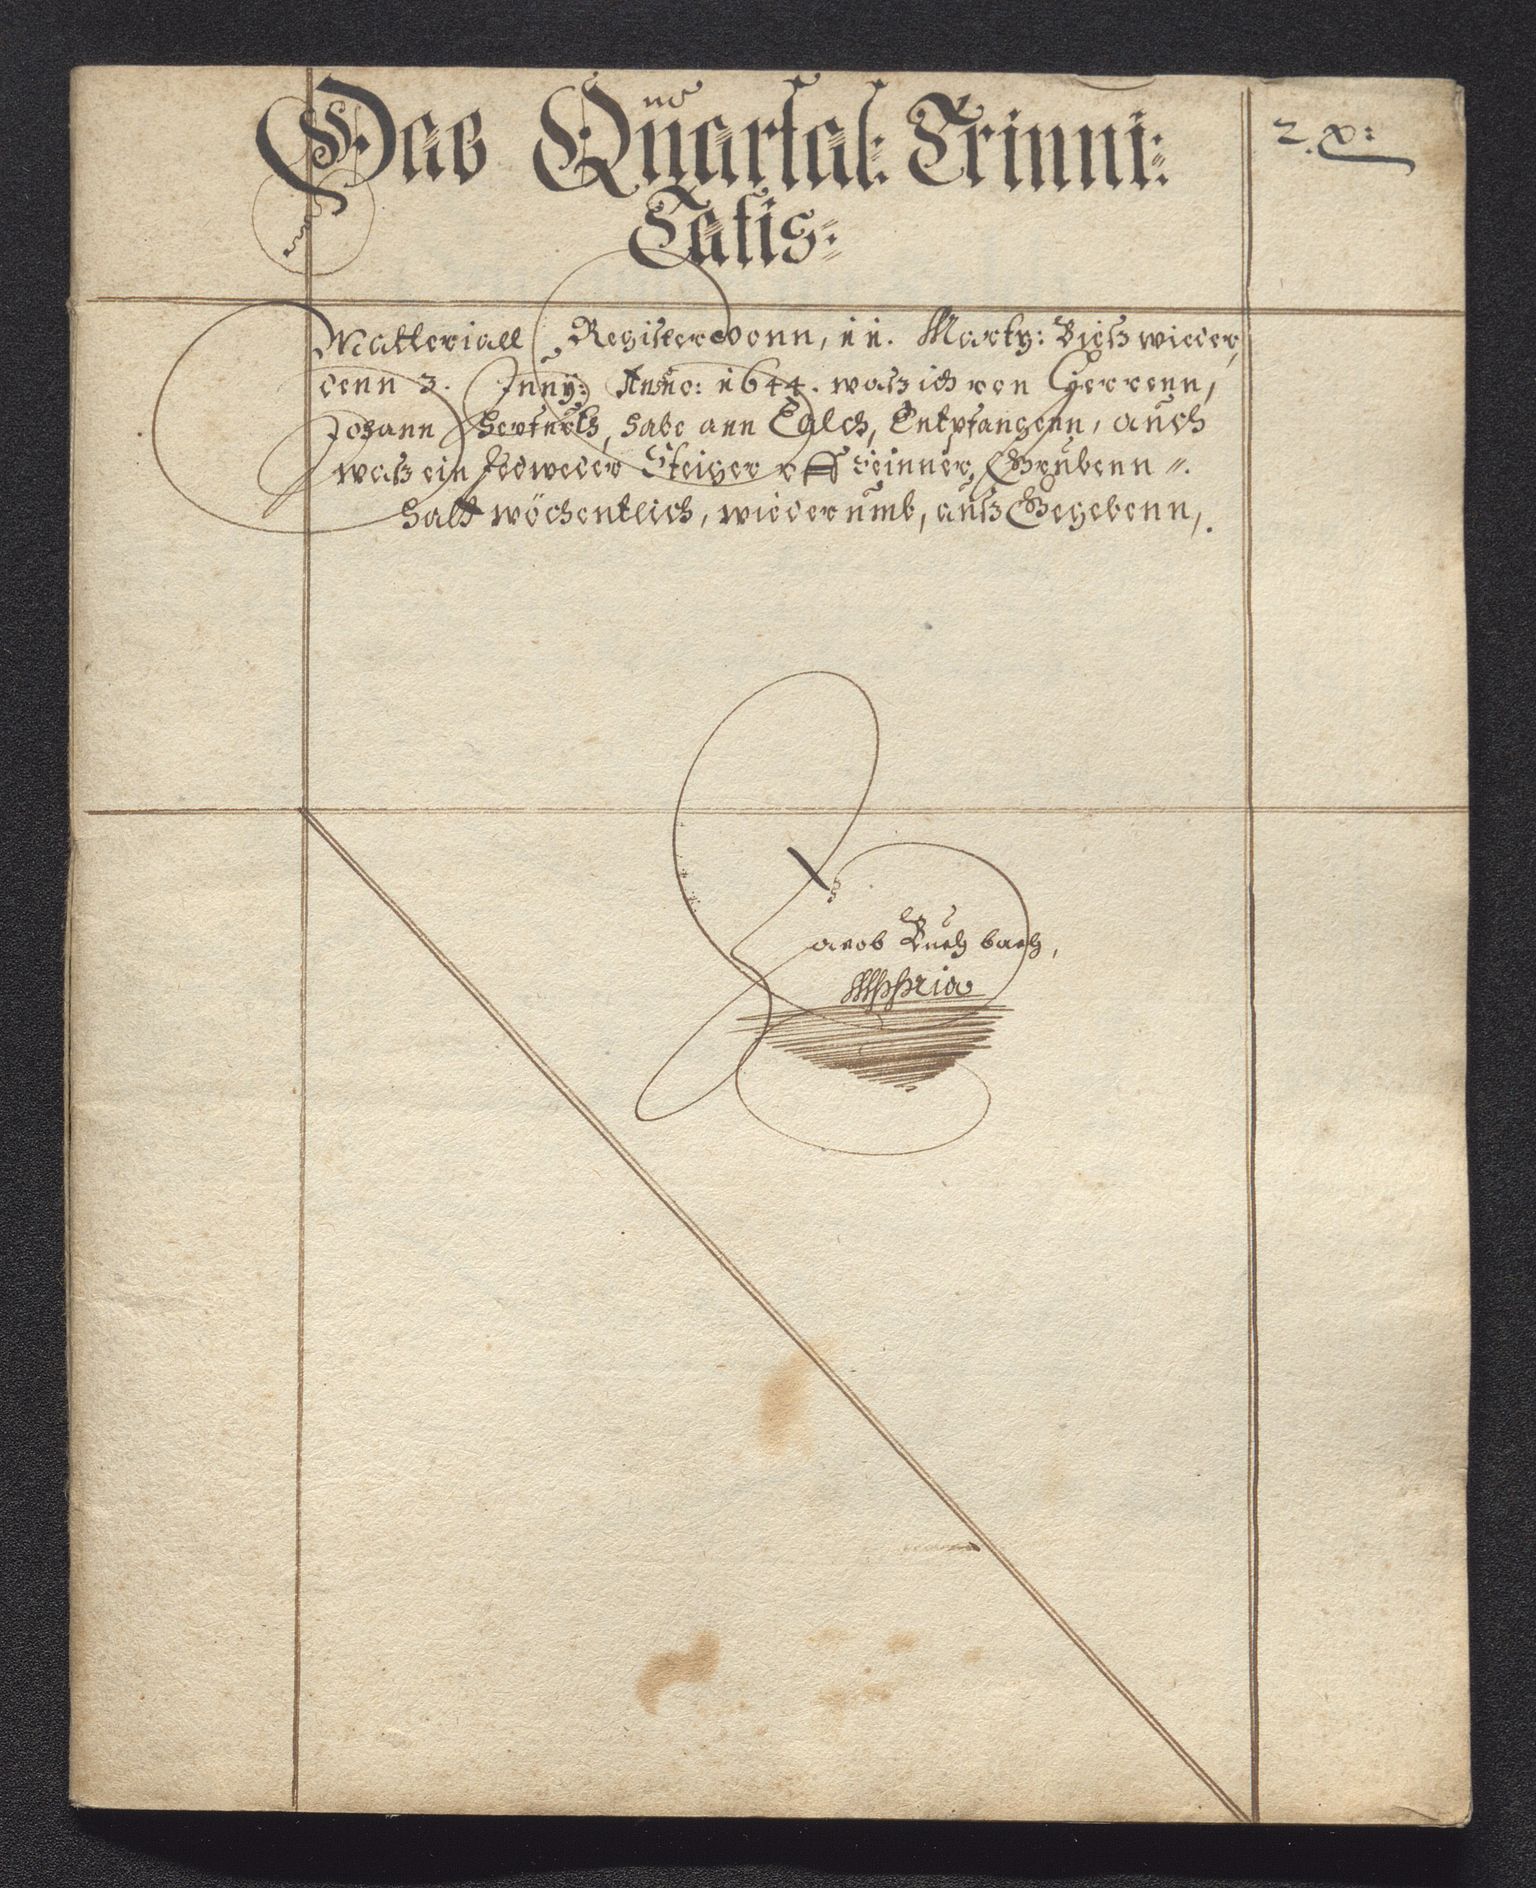 Das Quartal: Trinni:
Tatis:
2. x:
Matteriall Register vonn, 11. Marty: Bieß wieder,
denn 3. Juny: Anno: 1644. waß ich von Herrenn,
Johann habe ann Talch, Entpfangenn, auch
waß ein Jedweder Steiger vff seinner, Grubenn
hatt wöchentlich, wiederumb, auß Gegebenn,
Jacob Buch bach,
Mppria